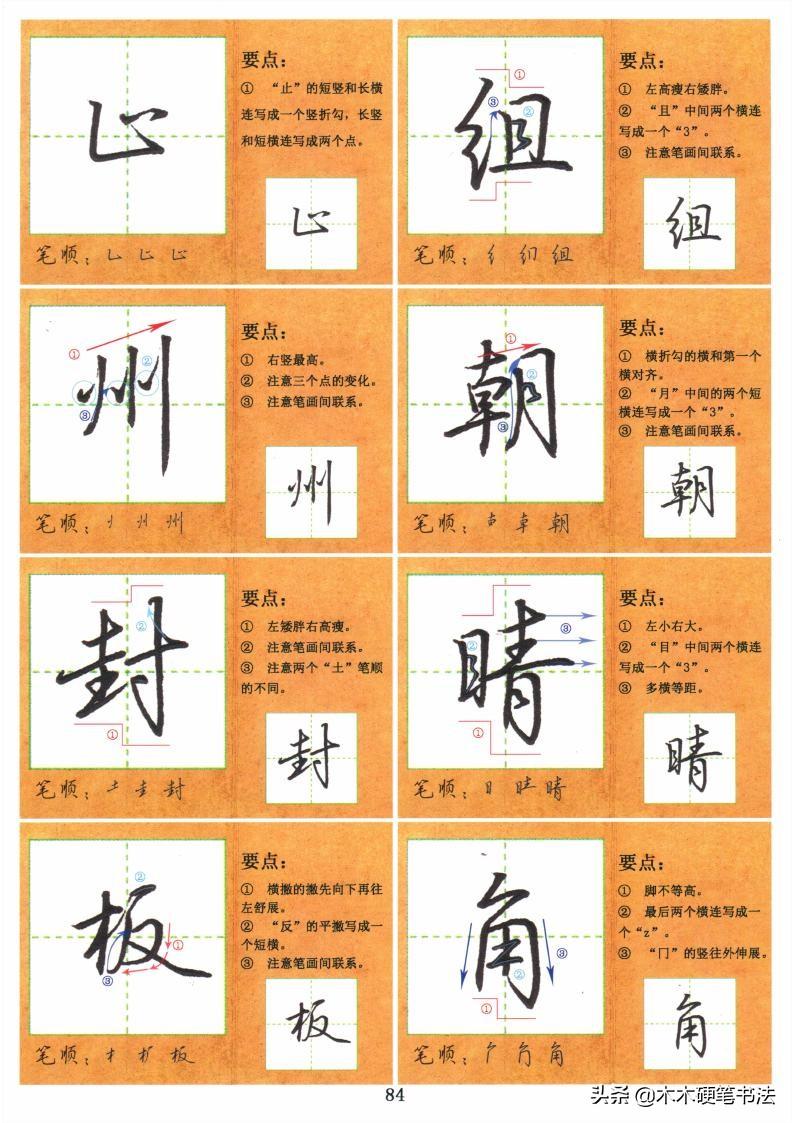 止
要点：
① “止”的短竖和长横
连写成一个竖折勾，长竖
和短横连写成两个点。
止
笔顺： 止
组
要点：
① 左高瘦右矮胖。
② “且”中间两个横连
写成一个“3”。
③ 注意笔画间联系。
组
笔顺： 纟 组
州
要点：
① 右竖最高。
② 注意三个点的变化。
③ 注意笔画间联系。
州
笔顺： 州
朝
要点：
① 横折勾的横和第一个
横对齐。
② “月”中间的两个短
横连写成一个“3”。
③ 注意笔画间联系。
朝
笔顺： 朝
封
要点：
① 左矮胖右高瘦。
② 注意笔画间联系。
③ 注意两个“土”笔顺
的不同。
封
笔顺： 土 圭 封
睛
要点：
① 左小右大。
② “目”中间两个横连
写成一个“3”。
③ 多横等距。
睛
笔顺： 目 睛
板
要点：
① 横撇的撇先向下再往
左舒展。
② “反”的平撇写成一
个短横。
③ 注意笔画间联系。
板
笔顺： 板
角
要点：
① 脚不等高。
② 最后两个横连写成一
个“z”。
③ “冂”的竖往外伸展。
角
笔顺： 角
84
头条 @木木硬笔书法